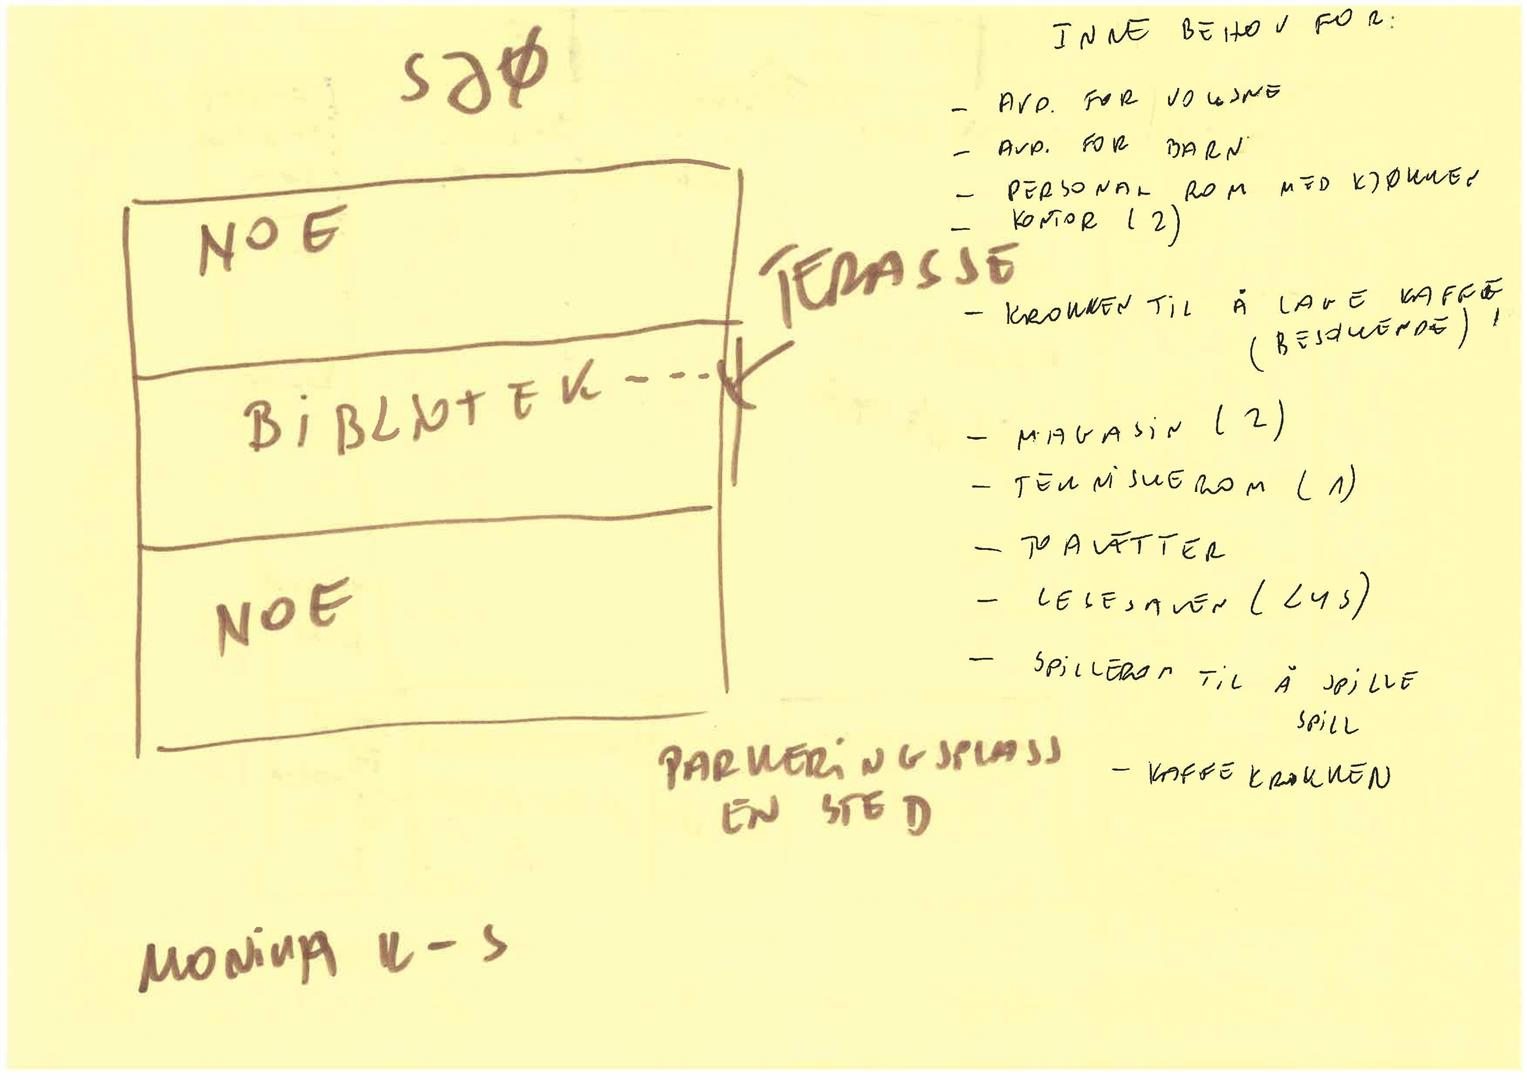 SJØ
NOE
TERASSE
BIBLIOTEK ----
NOE
PARKERINGSPLASS
EN STED
MONIKA K-S
INNE BEHOV FOR:
- AVD. FOR VOKSNE
- AVD. FOR BARN
- PERSONAL ROM MED KJØKKEN
- KONTOR (2)
- KROKKEN TIL Å LAGE KAFFE
(BESØKENDE)!
- MAGASIN (2)
- TEKNISKEROM (1)
- TOALETTER
- LESESALEN (LYS)
- SPILLEROM TIL Å SPILLE
SPILL
- KAFFE KROKKEN